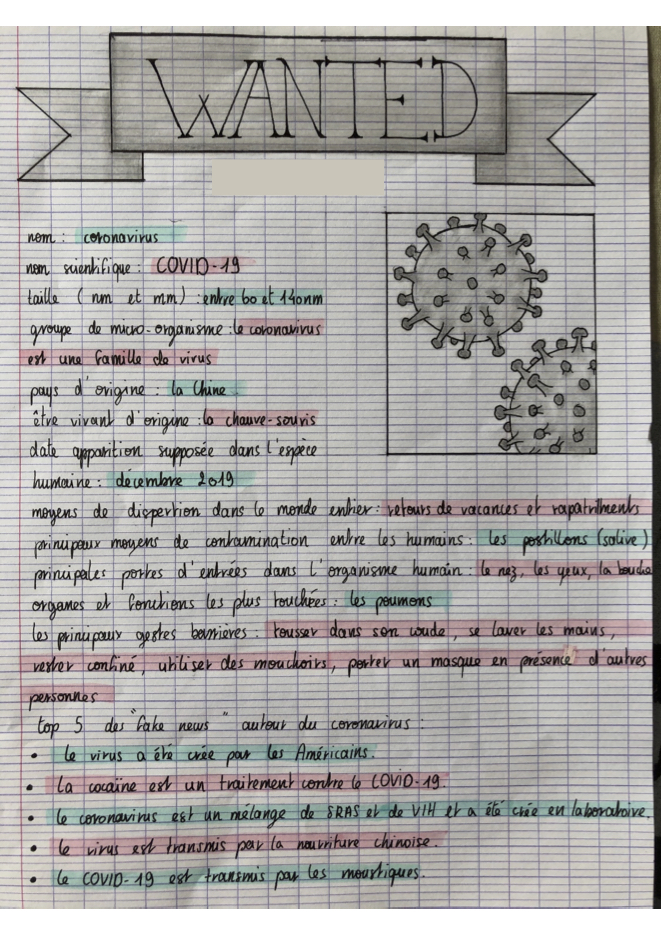 WANTED
nom : coronavirus
nom scientifique : COVID-19
taille ( nm et mm) : entre 60 et 140nm
groupe de micro-organisme : le coronavirus
est une famille de virus
pays d'origine : la Chine.
être vivant d'origine : la chauve-souris
date apparition supposée dans l'espèce
humaine : décembre 2019
moyens de dispertion dans le monde entier : retours de vacances et rapatriments
principaux moyens de contamination entre les humains : les postillons (salive)
principales portes d'entrées dans l'organisme humain : le nez, les yeux, la bouche
organes et fonctions les plus touchées : les poumons
les principaux gestes barrières : tousser dans son coude, se laver les mains,
rester confiné, utiliser des mouchoirs, porter un masque en présence d'autres
personnes
top 5 des "fake news" autour du coronavirus :
• le virus a été crée par les Américains.
• La cocaïne est un traitement contre le COVID-19.
• le coronavirus est un mélange de SRAS et de VIH et a été crée en laboratoire.
• le virus est transmis par la nourriture chinoise.
• le COVID-19 est transmis par les moustiques.